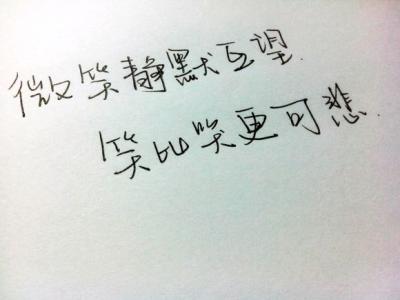 微笑静默互望.
笑比哭更可悲.